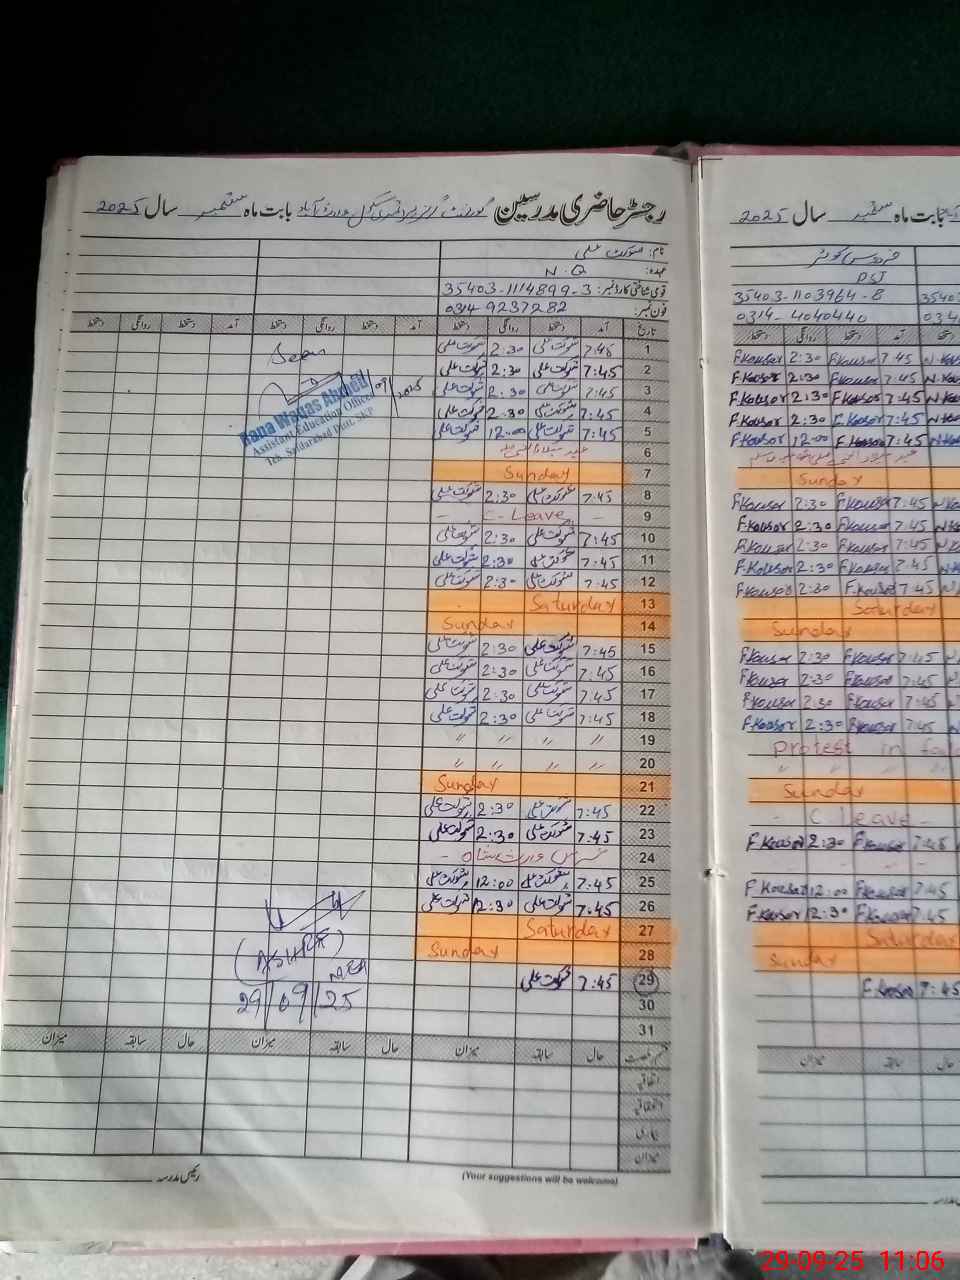 رجسٹر حاضری مدرسین گورنمنٹ گرلز پرائمری سکول بابت ماہ ستمبر سال 2025
نام: شوکت علی
عہدہ: N.Q
قومی شناختی کارڈ نمبر: 35403-1114899-3
فون نمبر: 0314-9237282
تاریخ آمد دستخط روانگی دستخط آمد دستخط روانگی دستخط آمد دستخط روانگی دستخط
1 7:45 شوکت علی 2:30 شوکت علی
2 7:45 شوکت علی 2:30 شوکت علی
3 7:45 شوکت علی 2:30 شوکت علی
4 7:45 شوکت علی 2:30 شوکت علی
5 7:45 شوکت علی 12:00 شوکت علی
6 عید میلاد النبی
7 Sunday
8 7:45 شوکت علی 2:30 شوکت علی
9 - C-Leave -
10 7:45 شوکت علی 2:30 شوکت علی
11 7:45 شوکت علی 2:30 شوکت علی
12 7:45 شوکت علی 2:30 شوکت علی
13 Saturday
14 Sunday
15 7:45 شوکت علی 2:30 شوکت علی
16 7:45 شوکت علی 2:30 شوکت علی
17 7:45 شوکت علی 2:30 شوکت علی
18 7:45 شوکت علی 2:30 شوکت علی
19 " " " "
20 " " " "
21 Sunday
22 7:45 شوکت علی 2:30 شوکت علی
23 7:45 شوکت علی 2:30 شوکت علی
24 عرس وارث شاہ -
25 7:45 شوکت علی 12:00 شوکت علی
26 7:45 شوکت علی 12:30 شوکت علی
27 Saturday
28 Sunday
29 7:45 شوکت علی
30
31
Seen
09/2025
Rana Waqas Ahmed
Assistant Education Officer
29/09/25
قسم رخصت حال سابقہ میزان حال سابقہ میزان حال سابقہ میزان
اتفاقیہ
استحقاقیہ
بیماری
میزان
(Your suggestions will be welcome)
رئیس مدرسہ
بابت ماہ ستمبر سال 2025
فردوس کوثر
PSJ
35403-1103964-8 35403
0314-4040440 034
آمد دستخط روانگی دستخط
F.Kousar 2:30 F.Kousar 7:45
F.Kousar 2:30 F.Kousar 7:45
F.Kousar 2:30 F.Kousar 7:45
F.Kousar 2:30 F.Kousar 7:45
F.Kousar 12:00 F.Kousar 7:45
عید میلاد النبی
Sunday
F.Kousar 2:30 F.Kousar 7:45
F.Kousar 2:30 F.Kousar 7:45
F.Kousar 2:30 F.Kousar 7:45
F.Kousar 2:30 F.Kousar 7:45
F.Kousar 2:30 F.Kousar 7:45
Saturday
Sunday
F.Kousar 2:30 F.Kousar 7:45
F.Kousar 2:30 F.Kousar 7:45
F.Kousar 2:30 F.Kousar 7:45
F.Kousar 2:30 F.Kousar 7:45
Protest in
Sunday
- C leave -
F.Kousar 2:30 F.Kousar 7:45
F.Kousar 12:00 F.Kousar 7:45
F.Kousar 12:30 F.Kousar 7:45
Saturday
Sunday
F.Kousar 7:45
میزان سابقہ حال
29-09-25 11:06